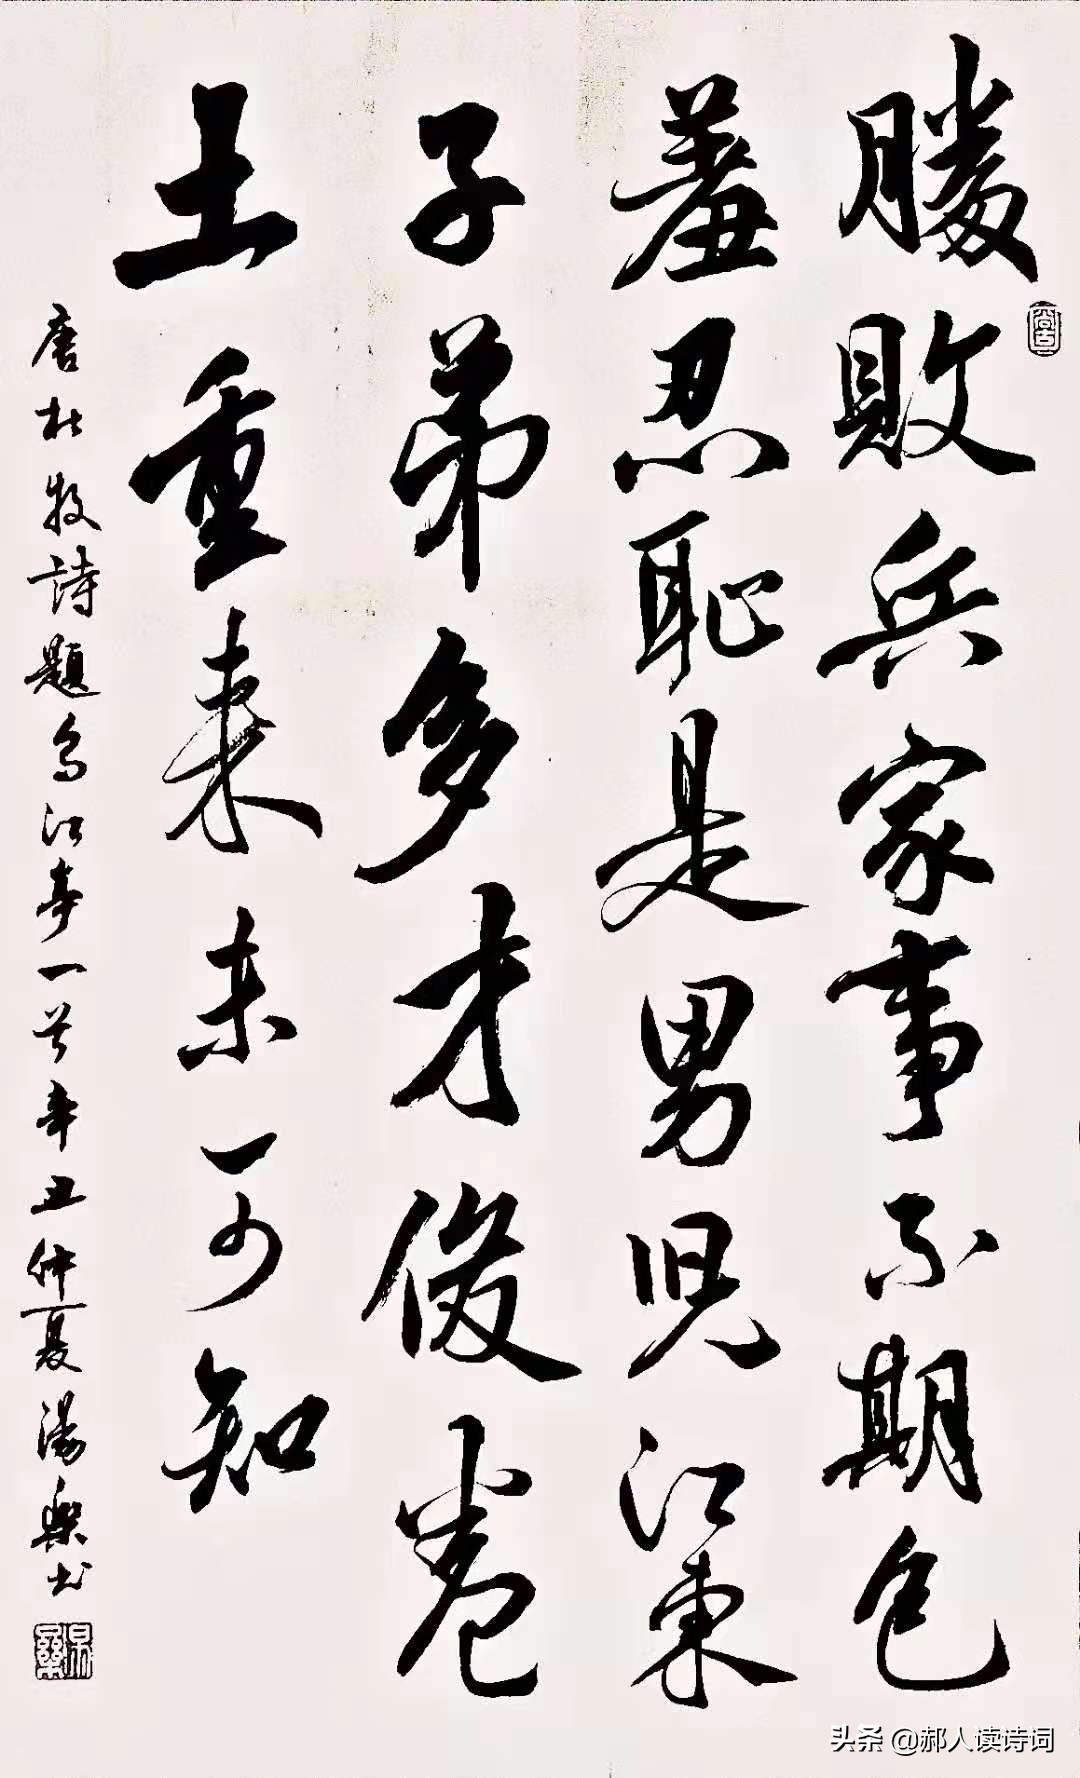 勝敗兵家事不期包
羞忍耻是男児江東
子弟多才俊卷
土重来未可知
唐杜牧詩題烏江亭一首辛丑仲夏湯樂书
头条 @郝人读诗词